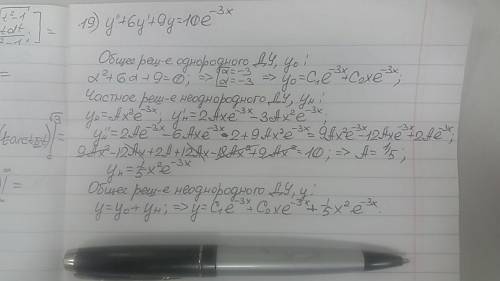 19) y''+6y'+9y=10e^{-3x}
Общее реш-е однородного ДУ, y₀:
α²+6α+9=0; => [α=-3 α=-3 => y₀=C₁e^{-3x}+C₂xe^{-3x};
Частное реш-е неоднородного ДУ, yн:
yн=Ax²e^{-3x}, y'н=2Axe^{-3x}-3Ax²e^{-3x};
y''н=2Ae^{-3x}-6Axe^{-3x}·2+9Ax²e^{-3x}=9Ax²e^{-3x}-12Axe^{-3x}+2Ae^{-3x};
9Ax²-12Ax+2A+12Ax-18Ax²+9Ax²=10; => A=1/5;
yн=1/5x²e^{-3x}
Общее реш-е неоднородного ДУ, y:
y=y₀+yн; => y=C₁e^{-3x}+C₂xe^{-3x}+1/5x²·e^{-3x}.